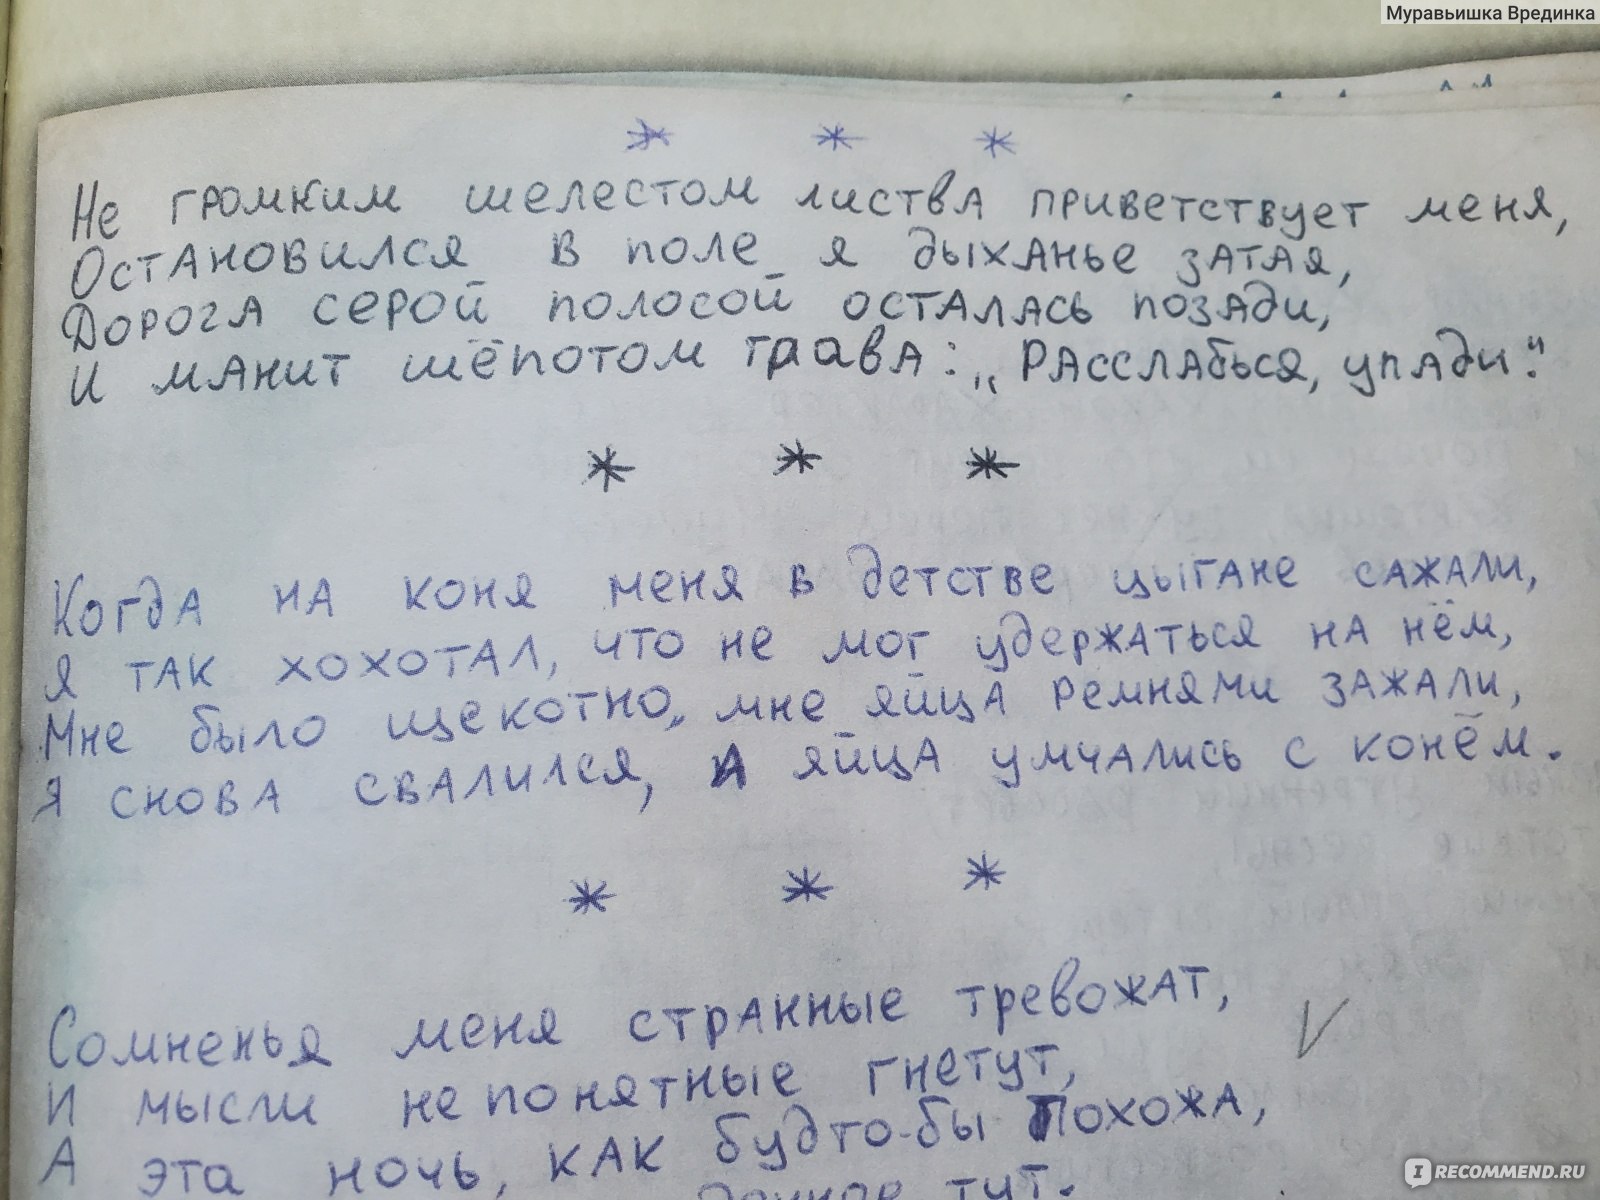 Муравьишка Врединка
* * *
Не громким шелестом листва приветствует меня,
Остановился в поле я дыханье затая,
Дорога серой полосой осталась позади,
И манит шёпотом трава: „Расслабься, упади."
* * *
Когда на коня меня в детстве цыгане сажали,
Я так хохотал, что не мог удержаться на нём,
Мне было щекотно, мне яйца ремнями зажали,
Я снова свалился, а яйца умчались с конём.
* * *
Сомненья меня странные тревожат,
И мысли непонятные гнетут,
А эта ночь, как будто-бы похожа,
тут.
IRECOMMEND.RU